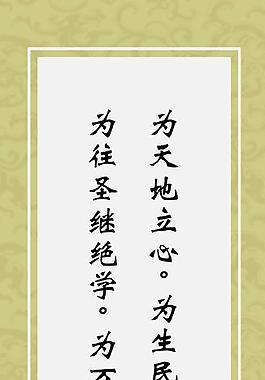 为天地立心。为生民
为往圣继绝学。为万